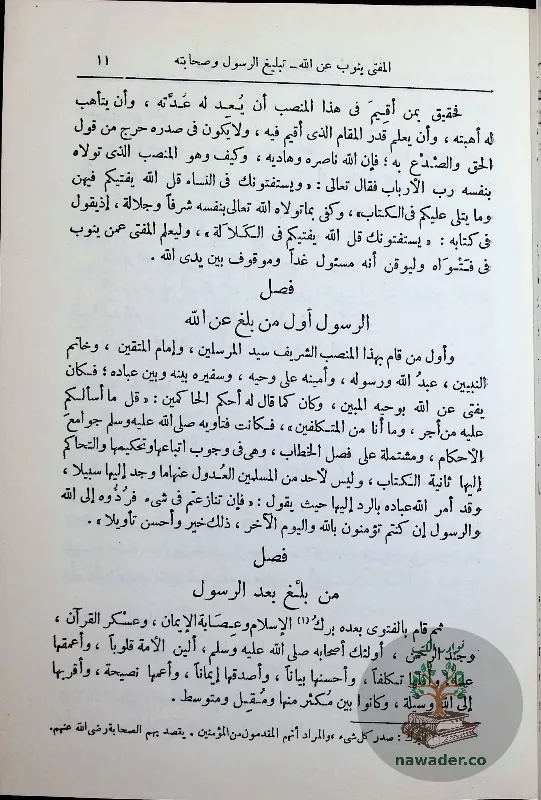 المفتى ينوب عن الله ــ تبليغ الرسول وصحابته ١١
فحقيق بمن أقيمَ فى هذا المنصب أن يُعِد له عُدَّته ، وأن يتأهب
له أهبته ، وأن يعلم قدر المقام الذى أقيم فيه ، ولا يكون فى صدره حرج من قول
الحق والصَّدْع به ؛ فإن الله ناصره وهاديه ، وكيف وهو المنصب الذى تولاه
بنفسه رب الأرباب فقال تعالى : « ويستفتونك فى النساء قل الله يفتيكم فيهن
وما يتلى عليكم فى الكتاب» ، وكفى بما تولاه الله تعالى بنفسه شرفاً وجلالة ، إذ يقول
فى كتابه : « يستفتونك قل الله يفتيكم فى الكَلاَلة » ، وليعلم المفتى عمن ينوب
فى فَتْوَاه وليوقن أنه مسئول غداً وموقوف بين يدى الله .
فصل
الرسول أول من بلغ عن الله
وأول من قام بهذا المنصب الشريف سيد المرسلين ، وإمام المتقين ، وخاتم
النبيين ، عبدُ الله ورسوله ، وأمينه على وحيه ، وسفيره بينه وبين عباده ؛ فكان
يفتى عن الله بوحيه المبين ، وكان كما قال له أحكم الحاكمين : « قل ما أسألكم
عليه من أجر ، وما أنا من المتكلفين » ، فكانت فتاويه صلى الله عليه وسلم جوامعَ
الأحكام ، ومشتملة على فصل الخطاب ، وهى فى وجوب اتباعها وتحكيمها والتحاكم
إليها ثانية الكتاب ، وليس لأحد من المسلمين العُدول عنها ما وجد إليها سبيلا ،
وقد أمر الله عباده بالرد إليها حيث يقول : « فإن تنازعتم فى شىء فردُّوه إلى الله
والرسول إن كنتم تؤمنون بالله واليوم الآخر ، ذلك خير وأحسن تأويلا » .
فصل
من بلَّغ بعد الرسول
ثم قام بالفتوى بعده برك (١) الإسلام وعِصَابة الإيمان ، وعسْكر القرآن ،
وجند الرحمن ، أولئك أصحابه صلى الله عليه وسلم ، ألين الأمة قلوباً ، وأعمقها
علماً ، وأقلها تكلفاً ، وأحسنها بياناً ، وأصدقها إيماناً ، وأعمها نصيحة ، وأقربها
إلى الله وسيلة ، وكانوا بين مُكثر منها ومُقِل ومتوسط .
: صدر كل شىء ، والمراد أنهم المقدمون من المؤمنين . يقصد بهم الصحابة رضى الله عنهم .
nawader.co